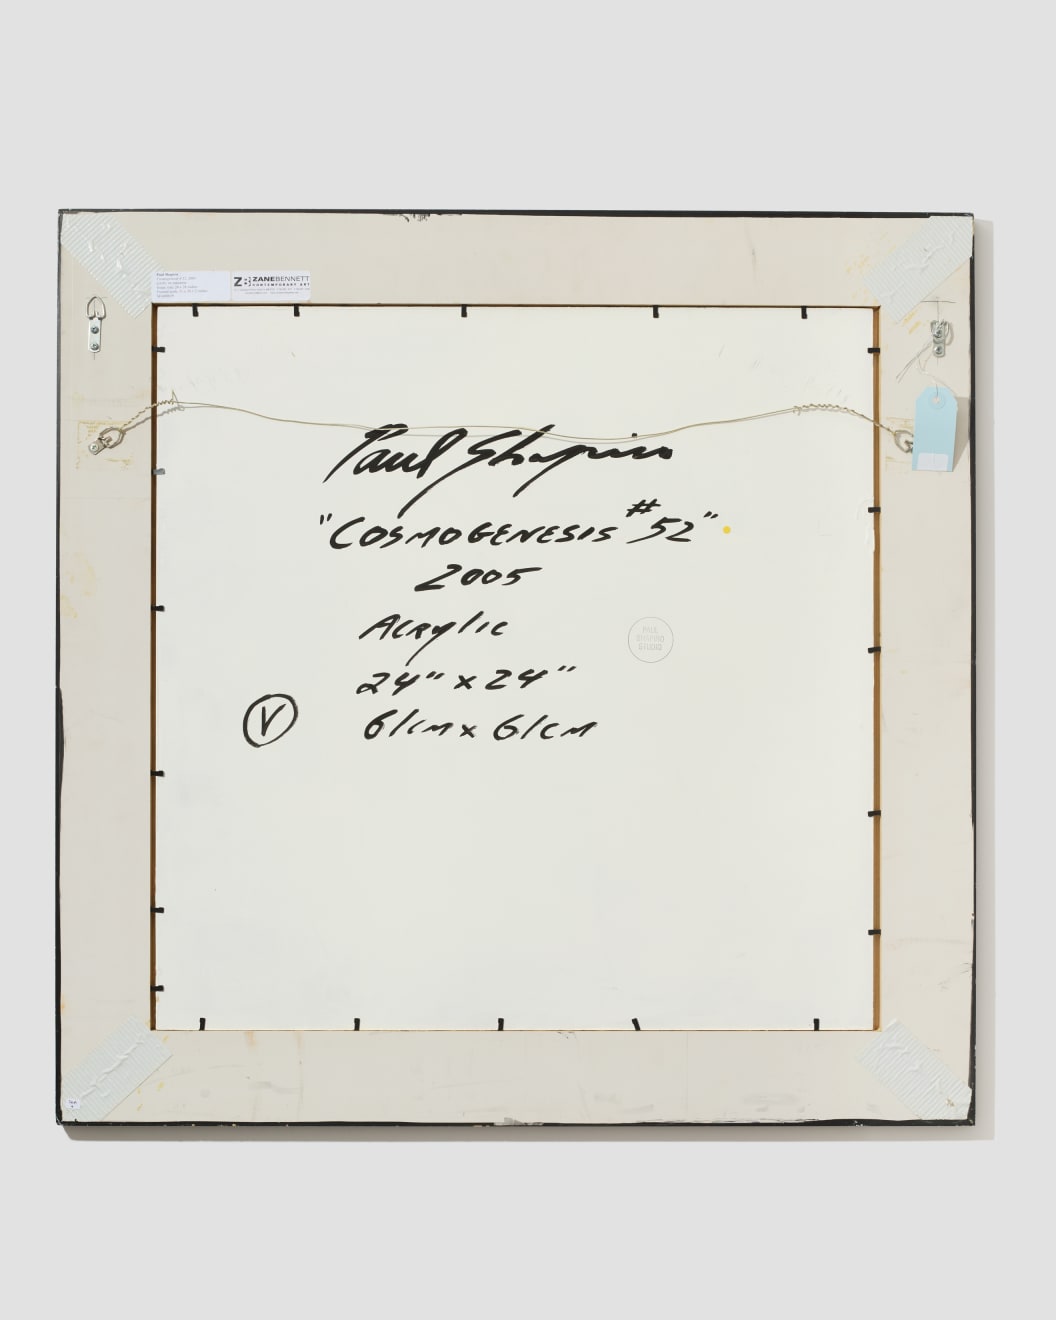 Paul Shapiro
ZANEBENNETT
CONTEMPORARY ART
Paul Shapiro
"COSMOGENESIS #52"
2005
Acrylic
24" x 24"
61cm x 61cm
PAUL
SHAPIRO
STUDIO
V